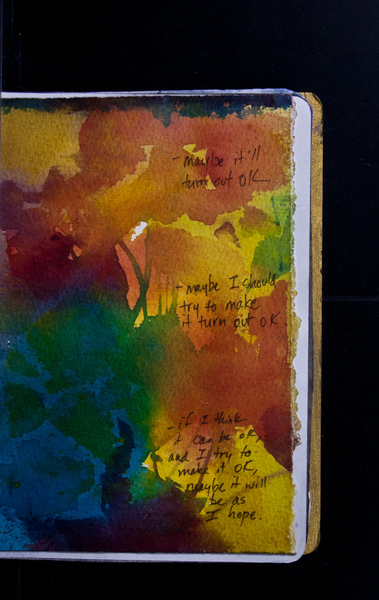 - maybe it'll
turn out OK
- maybe I should
try to make
it turn out OK.
- if I think
it can be OK,
and I try to
make it OK,
maybe it will
be as
I hope.